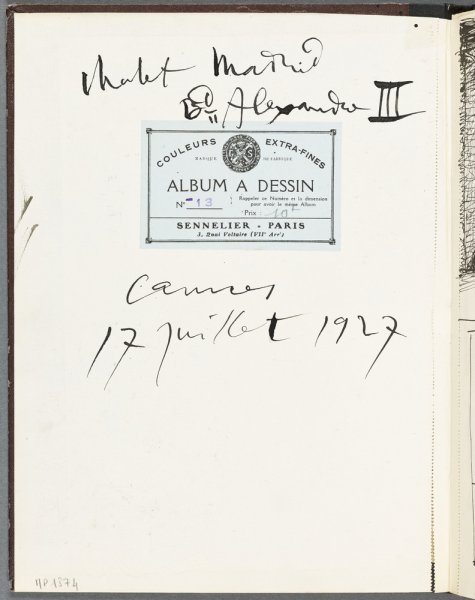 Chalet Madrid
Bd Alexandre III
COULEURS EXTRA-FINES
MARQUE DE FABRIQUE
ALBUM A DESSIN
N° 13 : Rappeler ce Numéro et la dimension
pour avoir le même Album
Prix : 10
SENNELIER - PARIS
3, Quai Voltaire (VIIe Arrt)
Cannes
17 juillet 1927
MP 1874